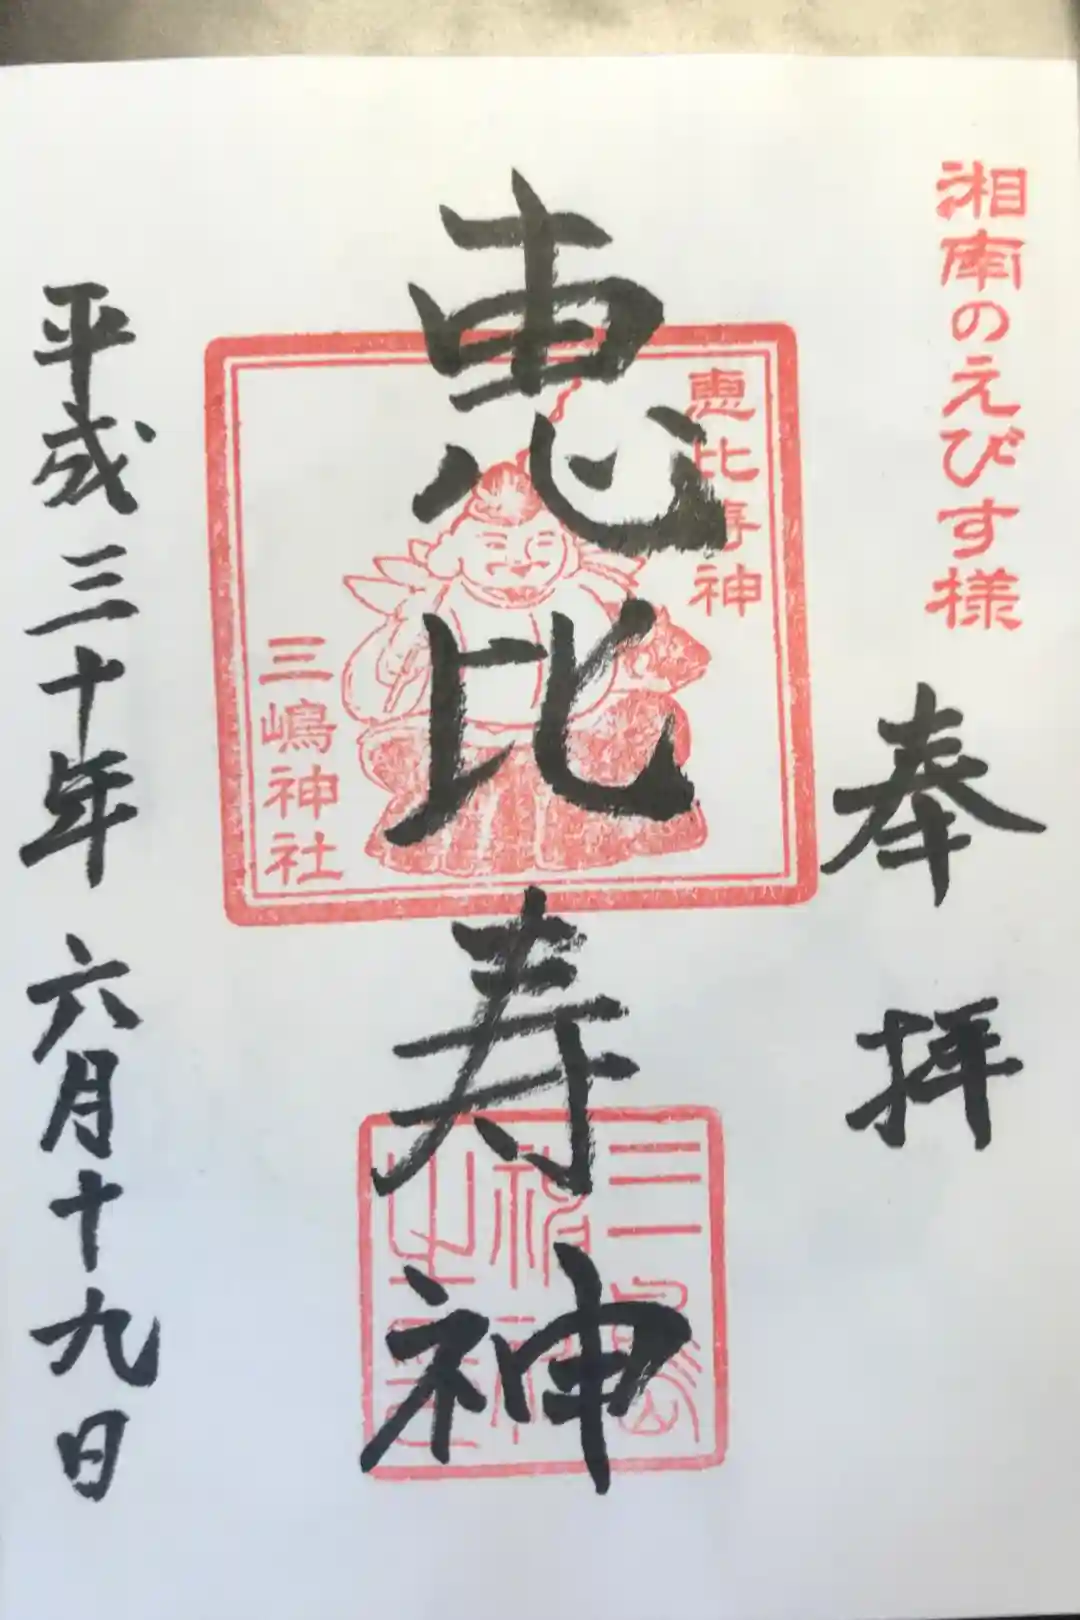 湘南のえびす様
奉拝
恵比寿神
恵比寿神
三嶋神社
平成三十年六月十九日